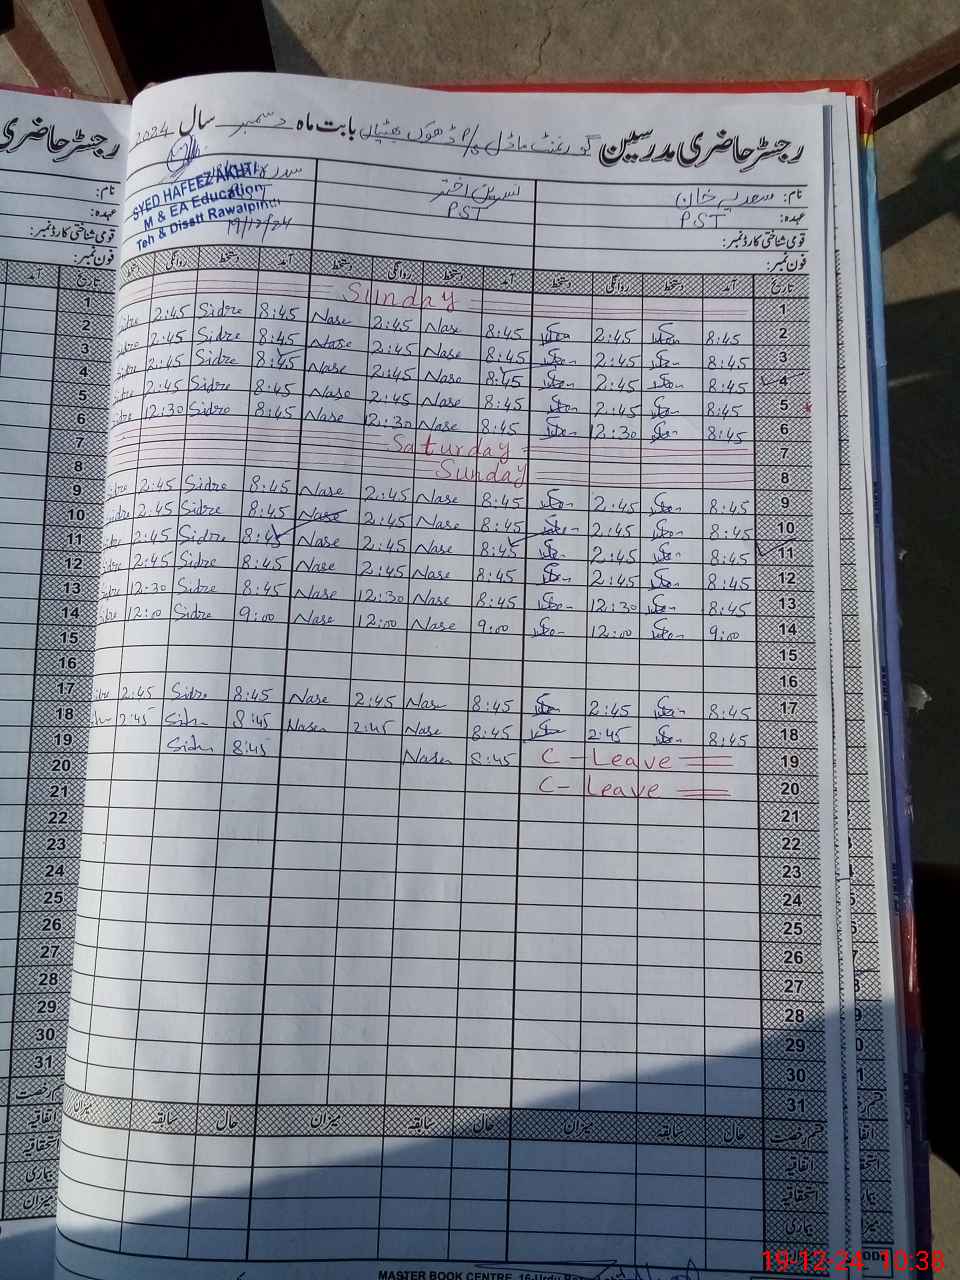 رجسٹر حاضری مدرسین گورنمنٹ ماڈل P/S ڈھوک بھٹیاں بابت ماہ دسمبر سال 2024
رجسٹر حاضری
نام: سعدیہ خان نسرین اختر سدرہ
عہدہ: PST PST
قومی شناختی کارڈ نمبر:
فون نمبر:
نام:
عہدہ:
قومی شناختی کارڈ نمبر:
فون نمبر:
SYED HAFEEZ AKHT
M & EA Education
Teh & Disstt Rawalpindi
19/12/24
تاریخ آمد دستخط روانگی دستخط آمد دستخط روانگی دستخط آمد دستخط روانگی دستخط
تاریخ آمد
1 Sunday 1
2 8:45 2:45 8:45 Nase 2:45 Nase 8:45 Sidre 2:45 Sidre 2
3 8:45 2:45 8:45 Nase 2:45 Nase 8:45 Sidre 2:45 Sidre 3
4 8:45 2:45 8:45 Nase 2:45 Nase 8:45 Sidre 2:45 4
5 8:45 2:45 8:45 Nase 2:45 Nase 8:45 Sidre 2:45 5
6 8:45 12:30 8:45 Nase 12:30 Nase 8:45 Sidre 12:30 Sidre 6
7 Saturday 7
8 Sunday 8
9 8:45 2:45 8:45 Nase 2:45 Nase 8:45 Sidre 2:45 Sidre 9
10 8:45 2:45 8:45 Nase 2:45 Nase 8:45 Sidre 2:45 Sidre 10
11 8:45 2:45 8:45 Nase 2:45 Nase 8:45 Sidre 2:45 11
12 8:45 2:45 8:45 Nase 2:45 Nase 8:45 Sidre 2:45 12
13 8:45 12:30 8:45 Nase 12:30 Nase 8:45 Sidre 12:30 13
14 9:00 12:00 9:00 Nase 12:00 Nase 9:00 Sidre 12:00 14
15 15
16 16
17 8:45 2:45 8:45 Nase 2:45 Nase 8:45 Sidre 2:45 17
18 8:45 2:45 8:45 Nase 2:45 Nasen 8:45 Sidr 2:45 18
19 C - Leave 8:45 Nasen 8:45 Sidr 19
20 C - Leave 20
21 21
22 22
23 23
24 24
25 25
26 26
27 27
28 28
29 29
30 30
31 31
قسم رخصت حال سابقہ میزان حال سابقہ میزان حال سابقہ میزان
اتفاقیہ
استحقاقیہ
بیماری
میزان
MASTER BOOK CENTRE, 16-Urdu
19-12-24 10:38